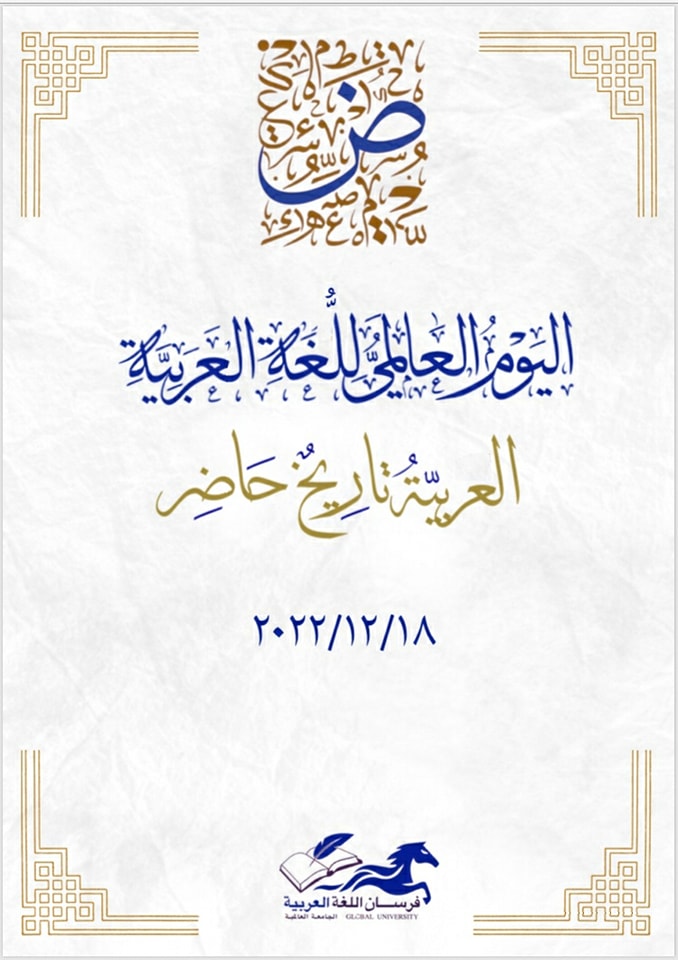 ض
اليَوْمُ العَالَمِيُّ لِلُّغَةِ العَرَبِيَّةِ
العربيّةُ تارِيخٌ حَاضِر
٢٠٢٢/١٢/١٨
فرسان اللغة العربية
الجامعة العالمية GLOBAL UNIVERSITY